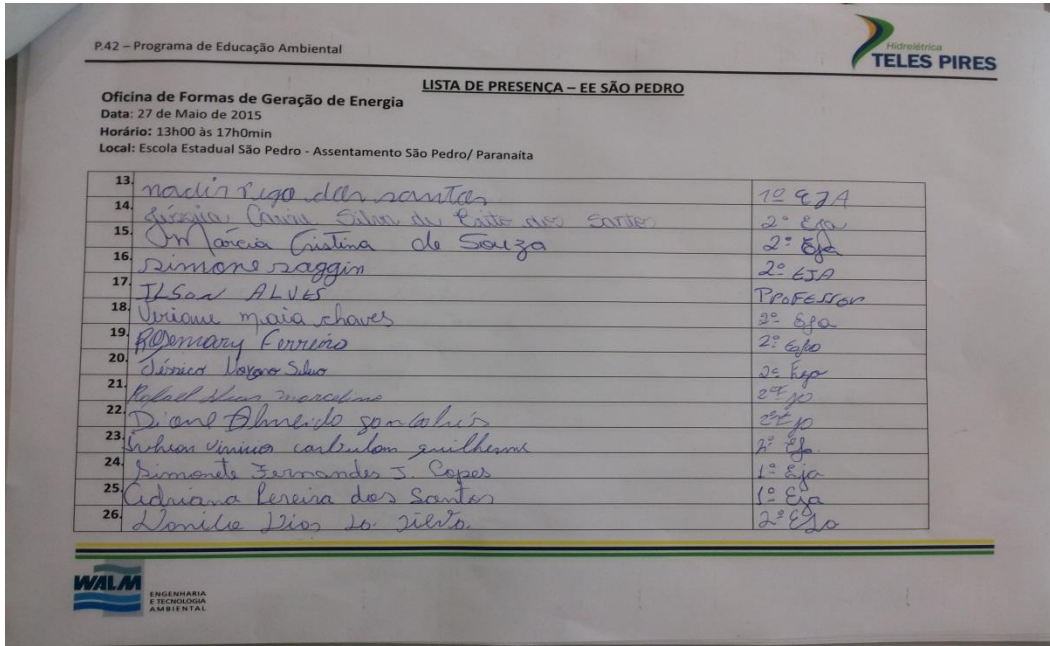 P.42 – Programa de Educação Ambiental
Hidrelétrica
TELES PIRES
LISTA DE PRESENÇA – EE SÃO PEDRO
Oficina de Formas de Geração de Energia
Data: 27 de Maio de 2015
Horário: 13h00 às 17h0min
Local: Escola Estadual São Pedro - Assentamento São Pedro/ Paranaíta
13. nadir rigo dos santos 1º EJA
14. Silva de dos Santos 2º Eja
15. Marcia Cristina de Souza 2º Eja
16. simone saggin 2º EJA
17. ILSon ALVES PROFESSOR
18. Viviane maia chaves 2º Eja
19. Rosemary Ferreira 2º Eja
20. Silva 2º Eja
21. Rafael marcelino
22. Diane Almeida
23. vinicius guilherme 2º Eja
24. Simonete Fernandes J. Copes 1º Eja
25. Adriana Pereira dos Santos 1º Eja
26. Dias da Silva. 2º Eja
WALM
ENGENHARIA
E TECNOLOGIA
AMBIENTAL